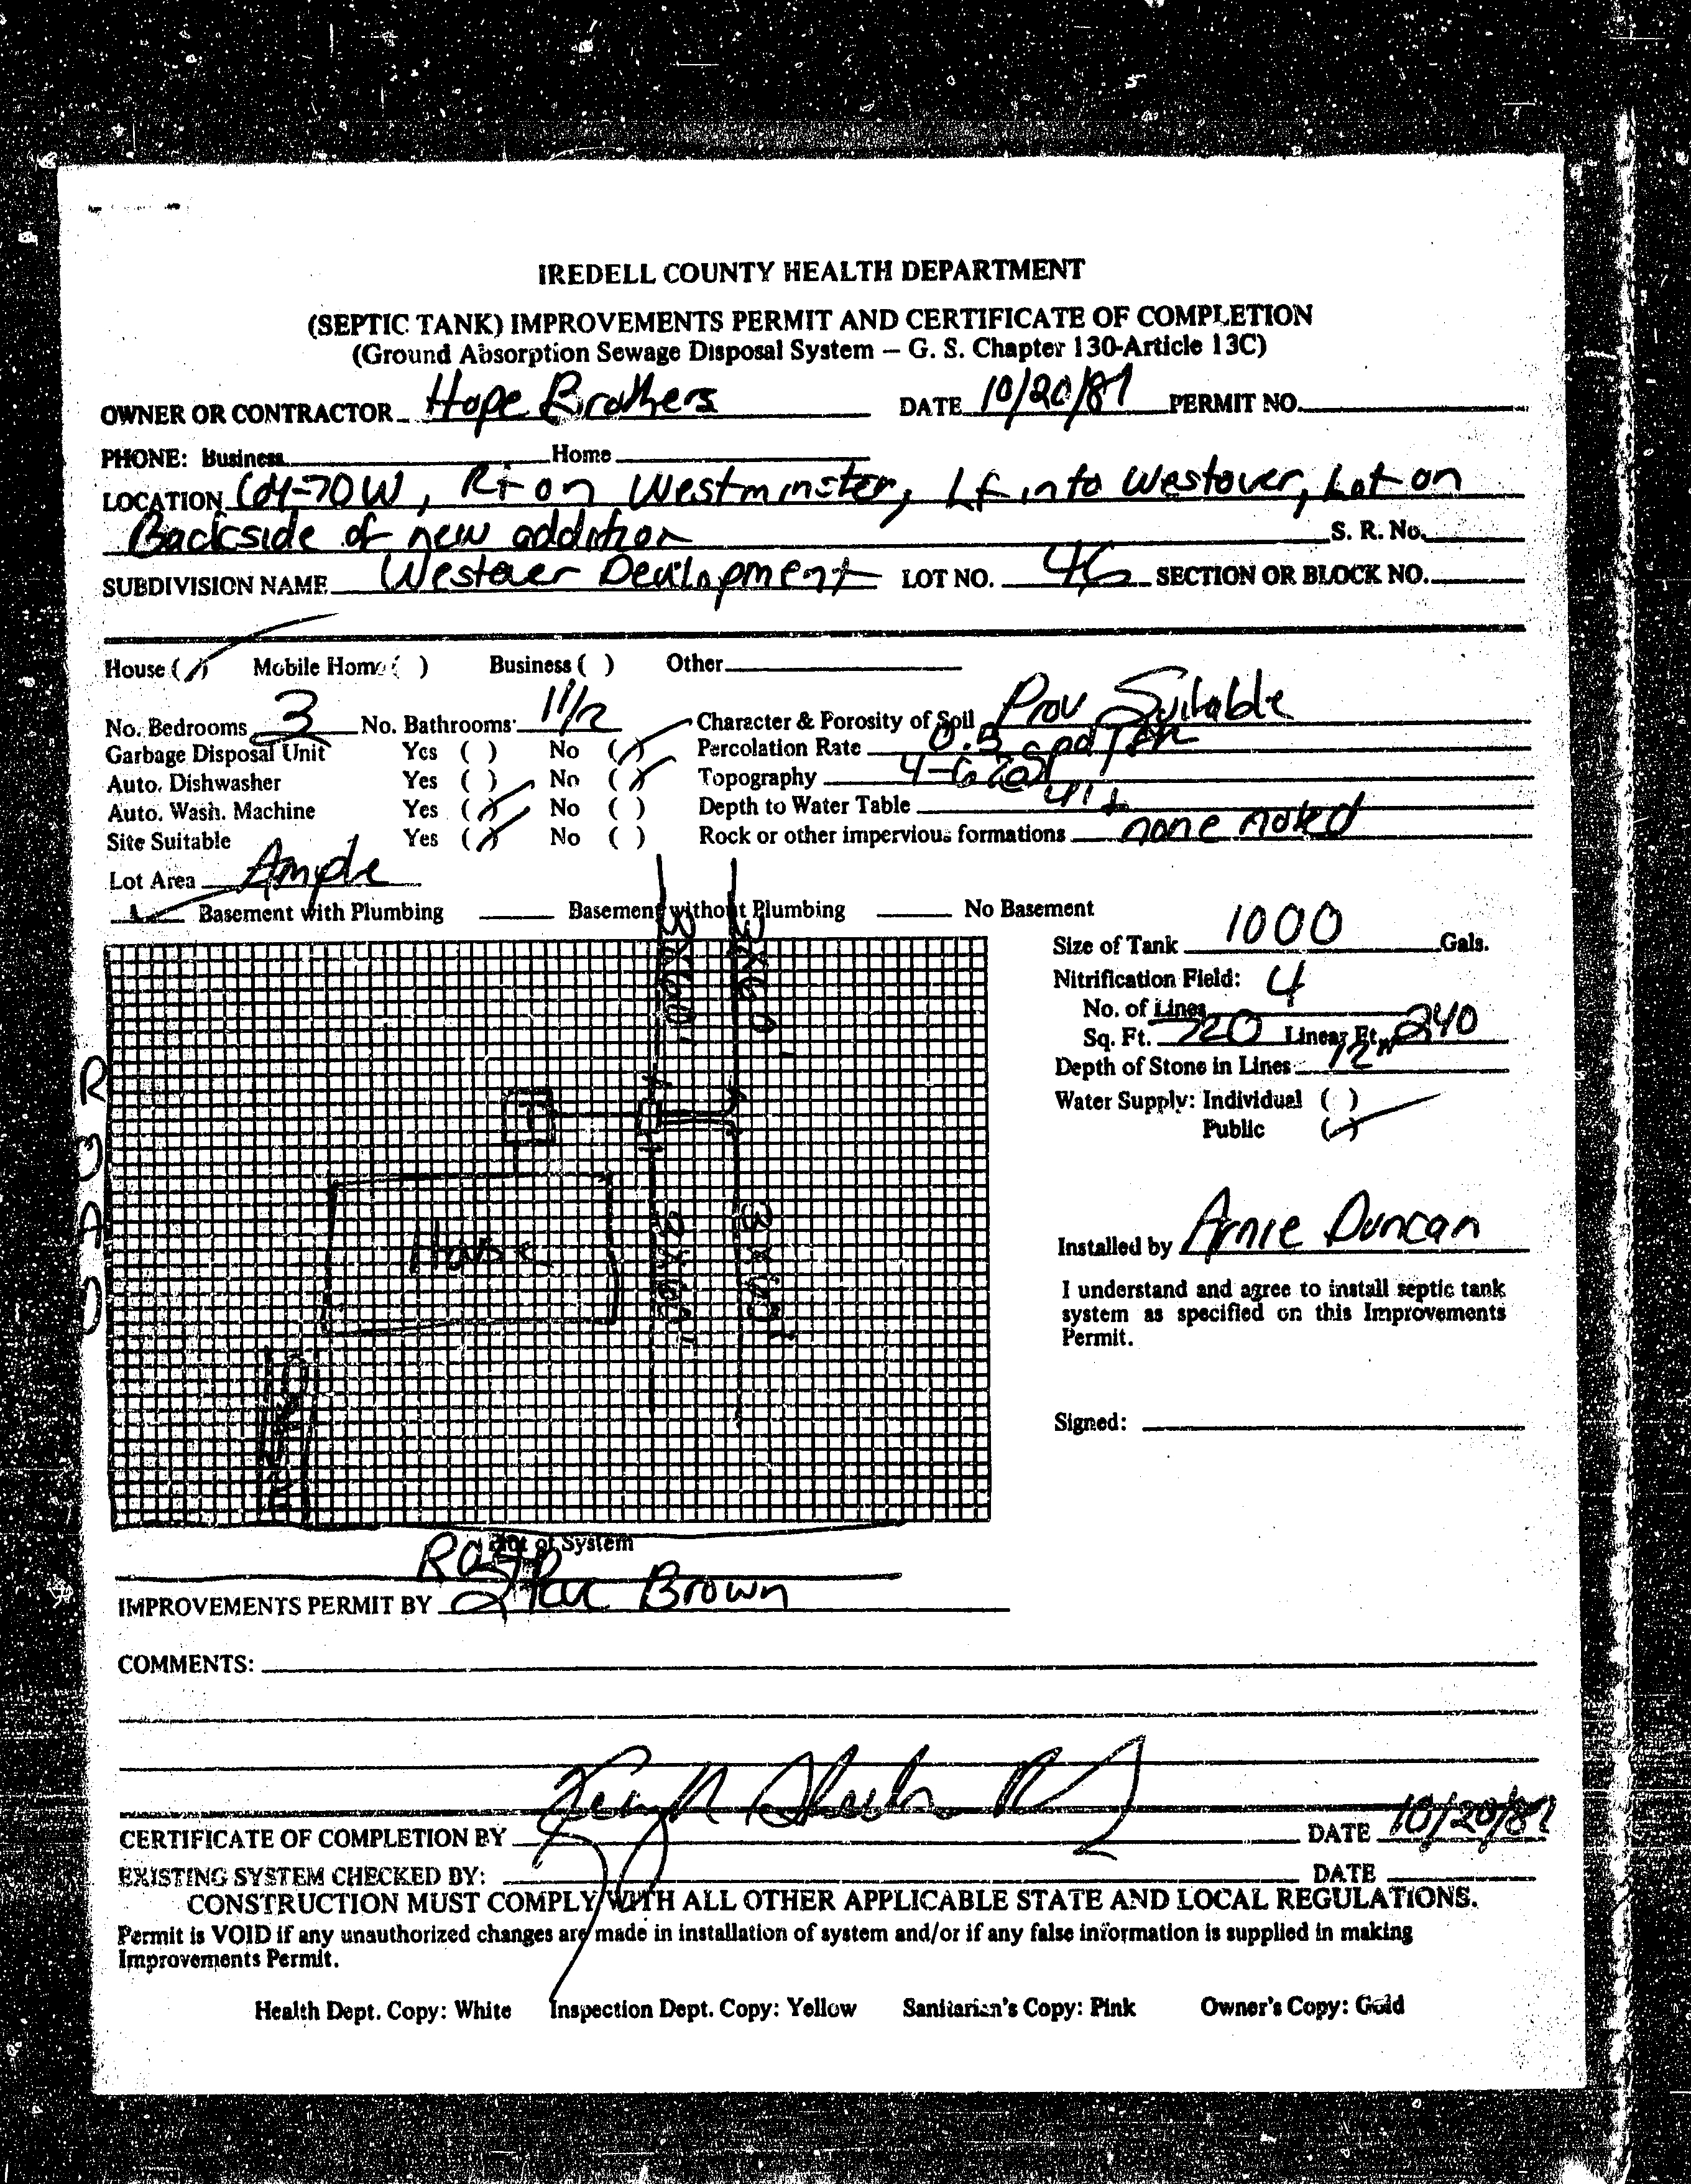 IREDELL COUNTY HEALTH DEPARTMENT
(SEPTIC TANK) IMPROVEMENTS PERMIT AND CERTIFICATE OF COMPLETION
(Ground Absorption Sewage Disposal System – G. S. Chapter 130-Article 13C)
OWNER OR CONTRACTOR Hope Brothers DATE 10/20/87 PERMIT NO.
PHONE: Business Home
LOCATION 64-70W, Rt on Westminster, Lf into Westover, Lot on
Backside of new addition S. R. No.
SUBDIVISION NAME Westover Development LOT NO. 46 SECTION OR BLOCK NO.
House ( ) Mobile Home ( ) Business ( ) Other
No. Bedrooms 3 No. Bathrooms 1 1/2 Character & Porosity of Soil Prov Suitable
Garbage Disposal Unit Yes ( ) No ( ) Percolation Rate 0.5 gpd/
Auto. Dishwasher Yes ( ) No ( ) Topography 4-6%
Auto. Wash. Machine Yes ( ) No ( ) Depth to Water Table 4'+
Site Suitable Yes ( ) No ( ) Rock or other impervious formations none noted
Lot Area Ample
Basement with Plumbing Basement without Plumbing No Basement
Size of Tank 1000 Gals.
Nitrification Field: 4
No. of Lines
Sq. Ft. 720 Linear Ft. 240
Depth of Stone in Lines 12"
Water Supply: Individual ( )
Public ( )
3x60' 3x60'
T
House
3x60' 3x60'
Drive
ROAD
Installed by Arnie Duncan
I understand and agree to install septic tank
system as specified on this Improvements
Permit.
Signed:
Plot of System
IMPROVEMENTS PERMIT BY Brown
COMMENTS:
CERTIFICATE OF COMPLETION BY DATE 10/20/87
EXISTING SYSTEM CHECKED BY: DATE
CONSTRUCTION MUST COMPLY WITH ALL OTHER APPLICABLE STATE AND LOCAL REGULATIONS.
Permit is VOID if any unauthorized changes are made in installation of system and/or if any false information is supplied in making
Improvements Permit.
Health Dept. Copy: White Inspection Dept. Copy: Yellow Sanitarian's Copy: Pink Owner's Copy: Gold